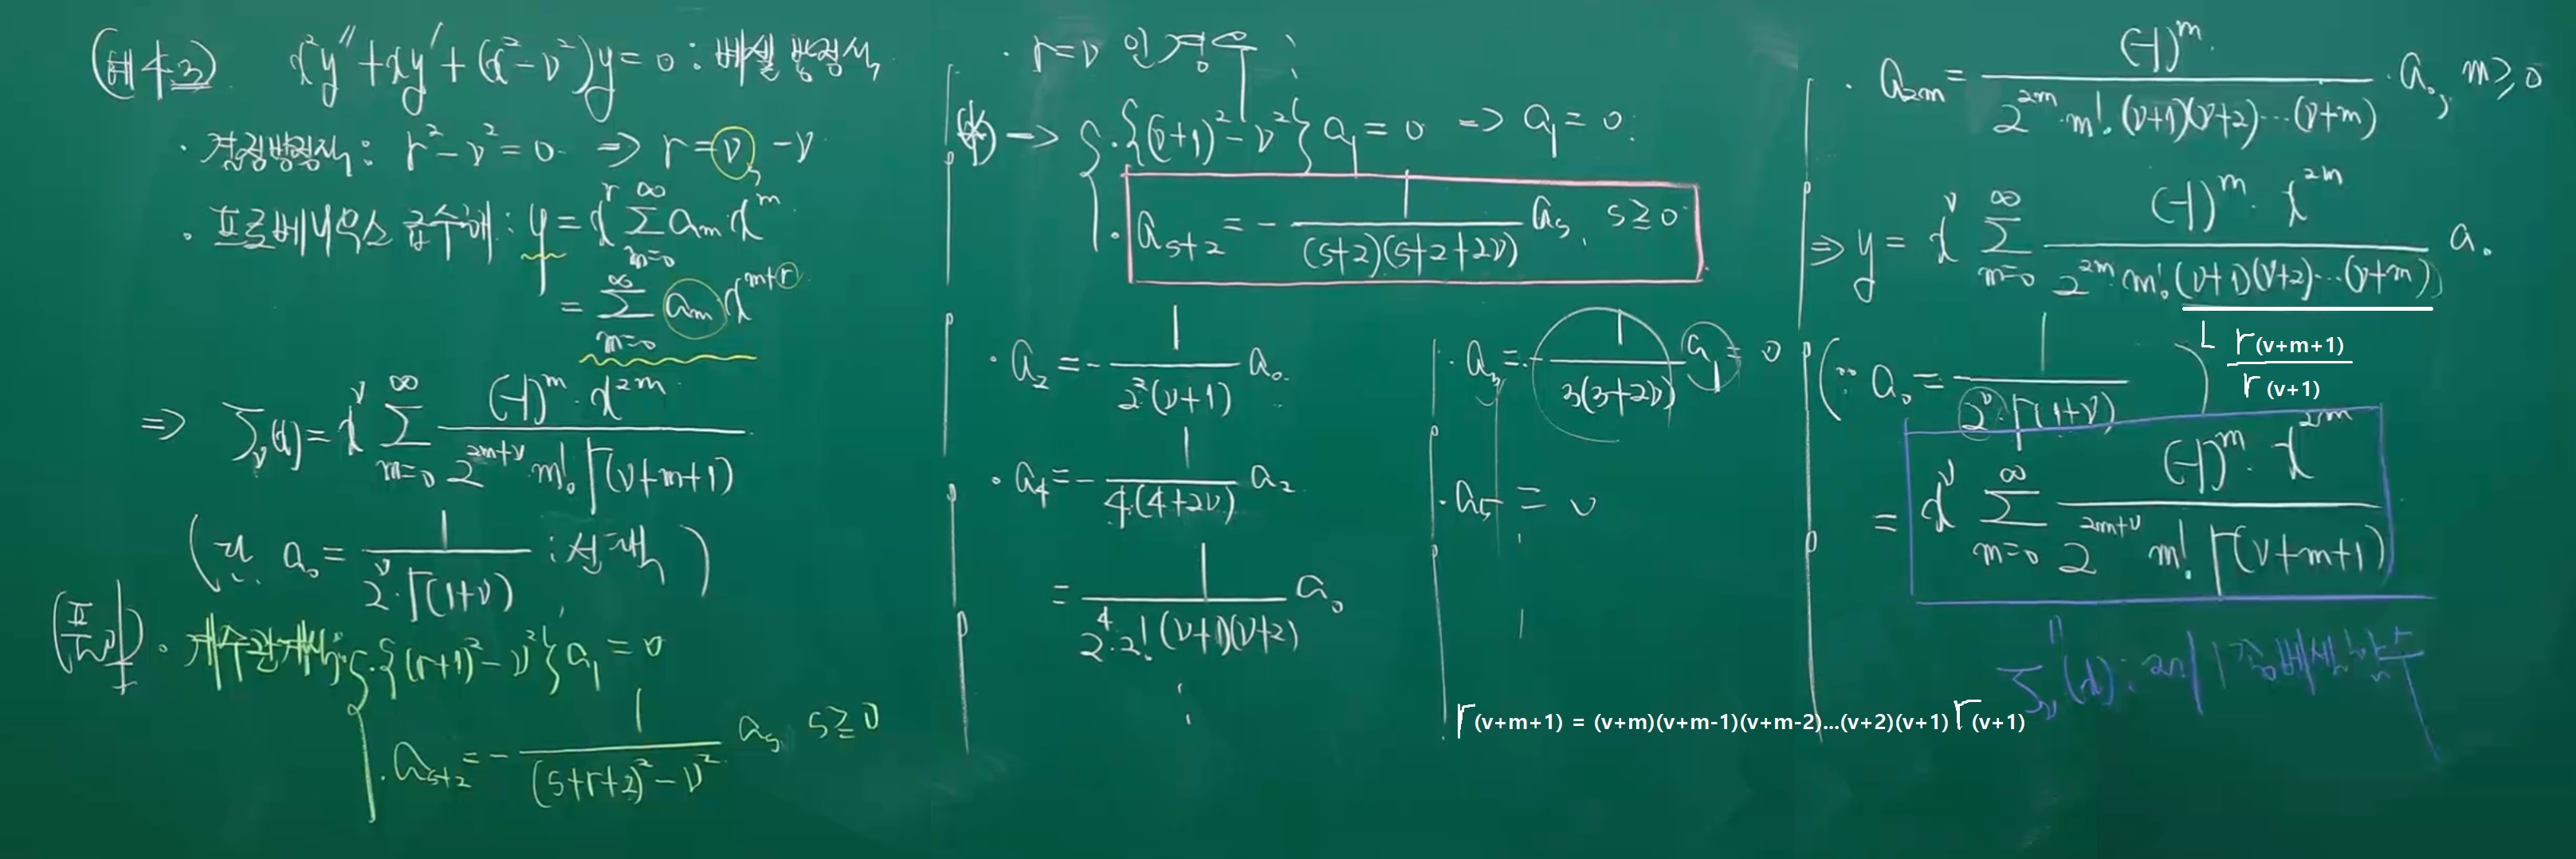 (예 4.3) x²y'' + xy' + (x² - ν²)y = 0 : 베셀 방정식
· 결정방정식 : r² - ν² = 0 ⇒ r = ν, -ν
· 프로베니우스 급수해 : y = x^r Σ_{m=0}^∞ a_m x^m
= Σ_{m=0}^∞ a_m x^{m+r}
⇒ J_ν(x) = x^ν Σ_{m=0}^∞ (-1)^m · x^{2m} / (2^{2m+ν} m! Γ(ν+m+1))
(단, a₀ = 1 / (2^ν · Γ(1+ν)) : 선택)
(풀이) · 계수관계식 : { · {(r+1)² - ν²} a₁ = 0
· a_{s+2} = - 1 / ((s+r+2)² - ν²) a_s, s ≥ 0
· r = ν 인 경우 ;
(*) → { · {(ν+1)² - ν²} a₁ = 0 ⇒ a₁ = 0.
· a_{s+2} = - 1 / ((s+2)(s+2+2ν)) a_s, s ≥ 0
· a₂ = - 1 / (2²(ν+1)) a₀
· a₄ = - 1 / (4·(4+2ν)) a₂
= 1 / (2⁴·2!(ν+1)(ν+2)) a₀
⋮
· a₃ = - 1 / (3(3+2ν)) a₁ = 0
· a₅ = 0
⋮
Γ(v+m+1) = (v+m)(v+m-1)(v+m-2)...(v+2)(v+1)Γ(v+1)
· a_{2m} = (-1)^m / (2^{2m}·m!·(ν+1)(ν+2)⋯(ν+m)) · a₀, m ≥ 0
⇒ y = x^ν Σ_{m=0}^∞ (-1)^m · x^{2m} / (2^{2m}·m!(ν+1)(ν+2)⋯(ν+m)) a₀
Γ(v+m+1) / Γ(v+1)
(∵ a₀ = 1 / (2^ν · Γ(1+ν)))
= x^ν Σ_{m=0}^∞ (-1)^m · x^{2m} / (2^{2m+ν} m! Γ(ν+m+1))
॥
J_ν(x) : 제1종 베셀함수